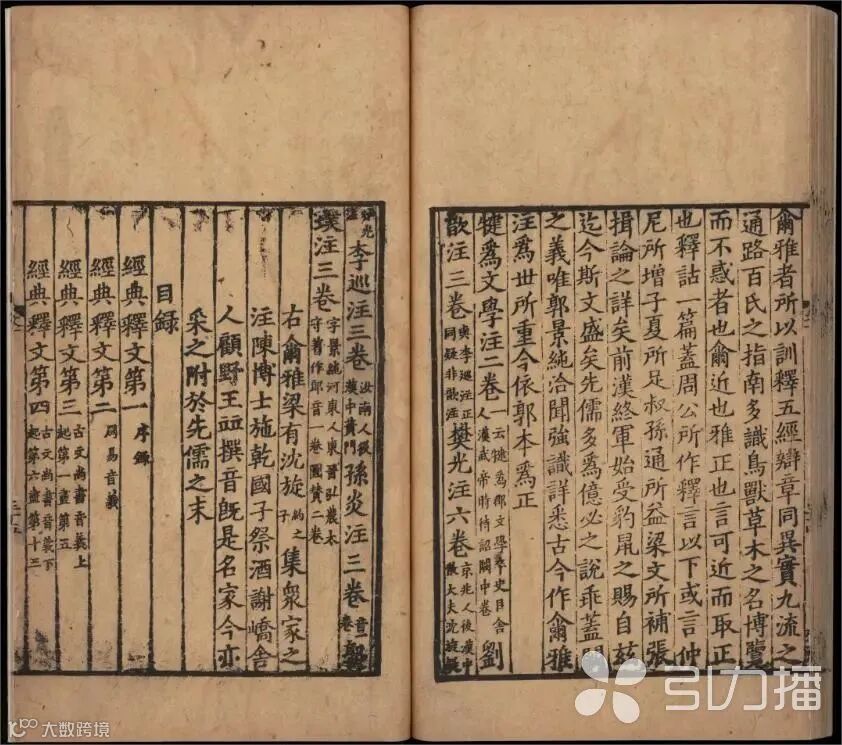 爾雅者所以訓釋五經辯章同異實九流之
通路百氏之指南多識鳥獸草木之名博覽
而不惑者也爾近也雅正也言可近而取正
也釋詁一篇蓋周公所作釋言以下或言仲
尼所增子夏所足叔孫通所益梁文所補張
揖論之詳矣前漢終軍始受豹鼠之賜自茲
迄今斯文盛矣先儒多爲億必之說乖蓋闕
之義唯郭景純洽聞強識詳悉古今作爾雅
注爲世所重今依郭本爲正
犍爲文學注二卷 一云犍爲郡文學卒史臣舍人漢武帝時待詔闕中卷 劉
歆注三卷 與李巡注正同疑非歆注 樊光注六卷 京兆人後漢中散大夫沈旋疑
非光注 李巡注三卷 汝南人後漢中黃門 孫炎注三卷 音一卷 郭
璞注三卷 字景純河東人東晉弘農太守著作郎音一卷圖贊二卷
右爾雅梁有沈旋 約之子 集眾家之
注陳博士施乾國子祭酒謝嶠舍
人顧野王並撰音旣是名家今亦
采之附於先儒之末
目錄
經典釋文第一 序錄
經典釋文第二 周易音義
經典釋文第三 古文尚書音義上 起第一盡第五
經典釋文第四 古文尚書音義下 起第六盡第十三
引力播
大数跨境